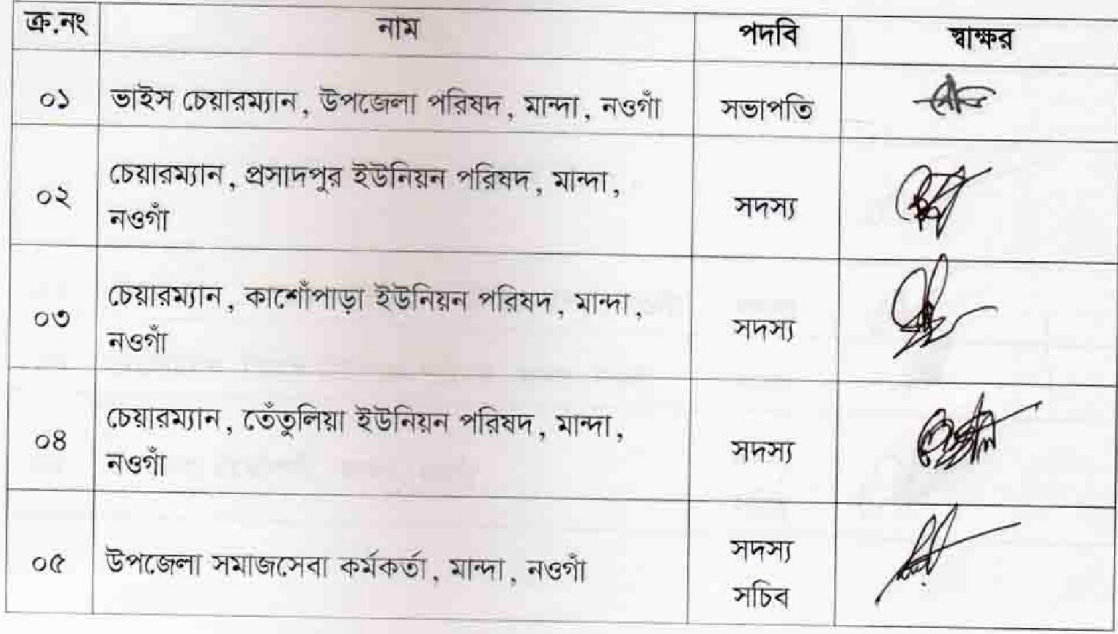 ক্র.নং নাম পদবি স্বাক্ষর
০১ ভাইস চেয়ারম্যান, উপজেলা পরিষদ, মান্দা, নওগাঁ সভাপতি
০২ চেয়ারম্যান, প্রসাদপুর ইউনিয়ন পরিষদ, মান্দা,
নওগাঁ সদস্য
০৩ চেয়ারম্যান, কাশোঁপাড়া ইউনিয়ন পরিষদ, মান্দা,
নওগাঁ সদস্য
০৪ চেয়ারম্যান, তেঁতুলিয়া ইউনিয়ন পরিষদ, মান্দা,
নওগাঁ সদস্য
০৫ উপজেলা সমাজসেবা কর্মকর্তা, মান্দা, নওগাঁ সদস্য
সচিব